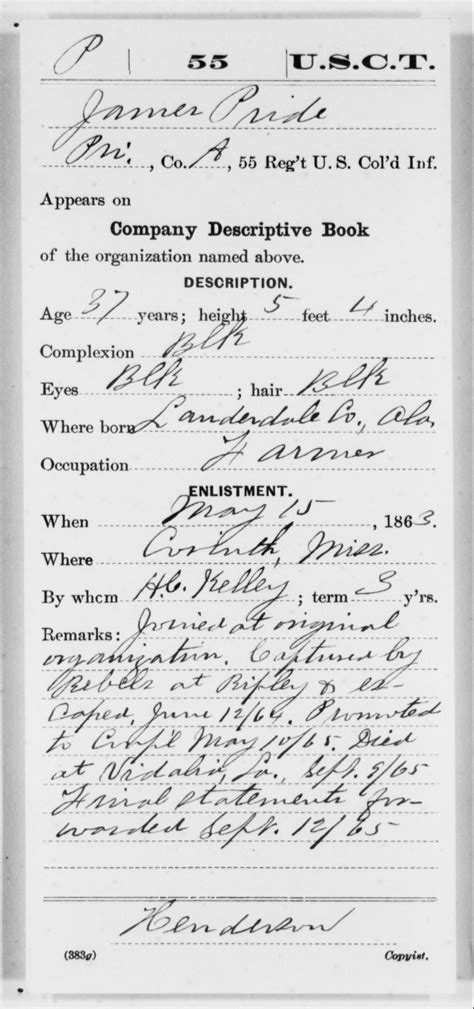 P | 55 | U.S.C.T.
James Pride
Pri., Co. A, 55 Reg't U.S. Col'd Inf.
Appears on
Company Descriptive Book
of the organization named above.
DESCRIPTION.
Age 37 years; height 5 feet 4 inches.
Complexion Blk
Eyes Blk ; hair Blk
Where born Lauderdale Co., Ala.
Occupation Farmer
ENLISTMENT.
When May 15, 1863.
Where Corinth, Miss.
By whom H.C. Kelley ; term 3 y'rs.
Remarks: Joined at original
organization. Captured by
Rebels at Ripley & es-
caped, June 12/64. Promoted
to Corp'l May 10/65. Died
at Vidalia, La., Sept. 9/65
Final statements for-
warded Sept. 12/65
Henderson
(383g) Copyist.